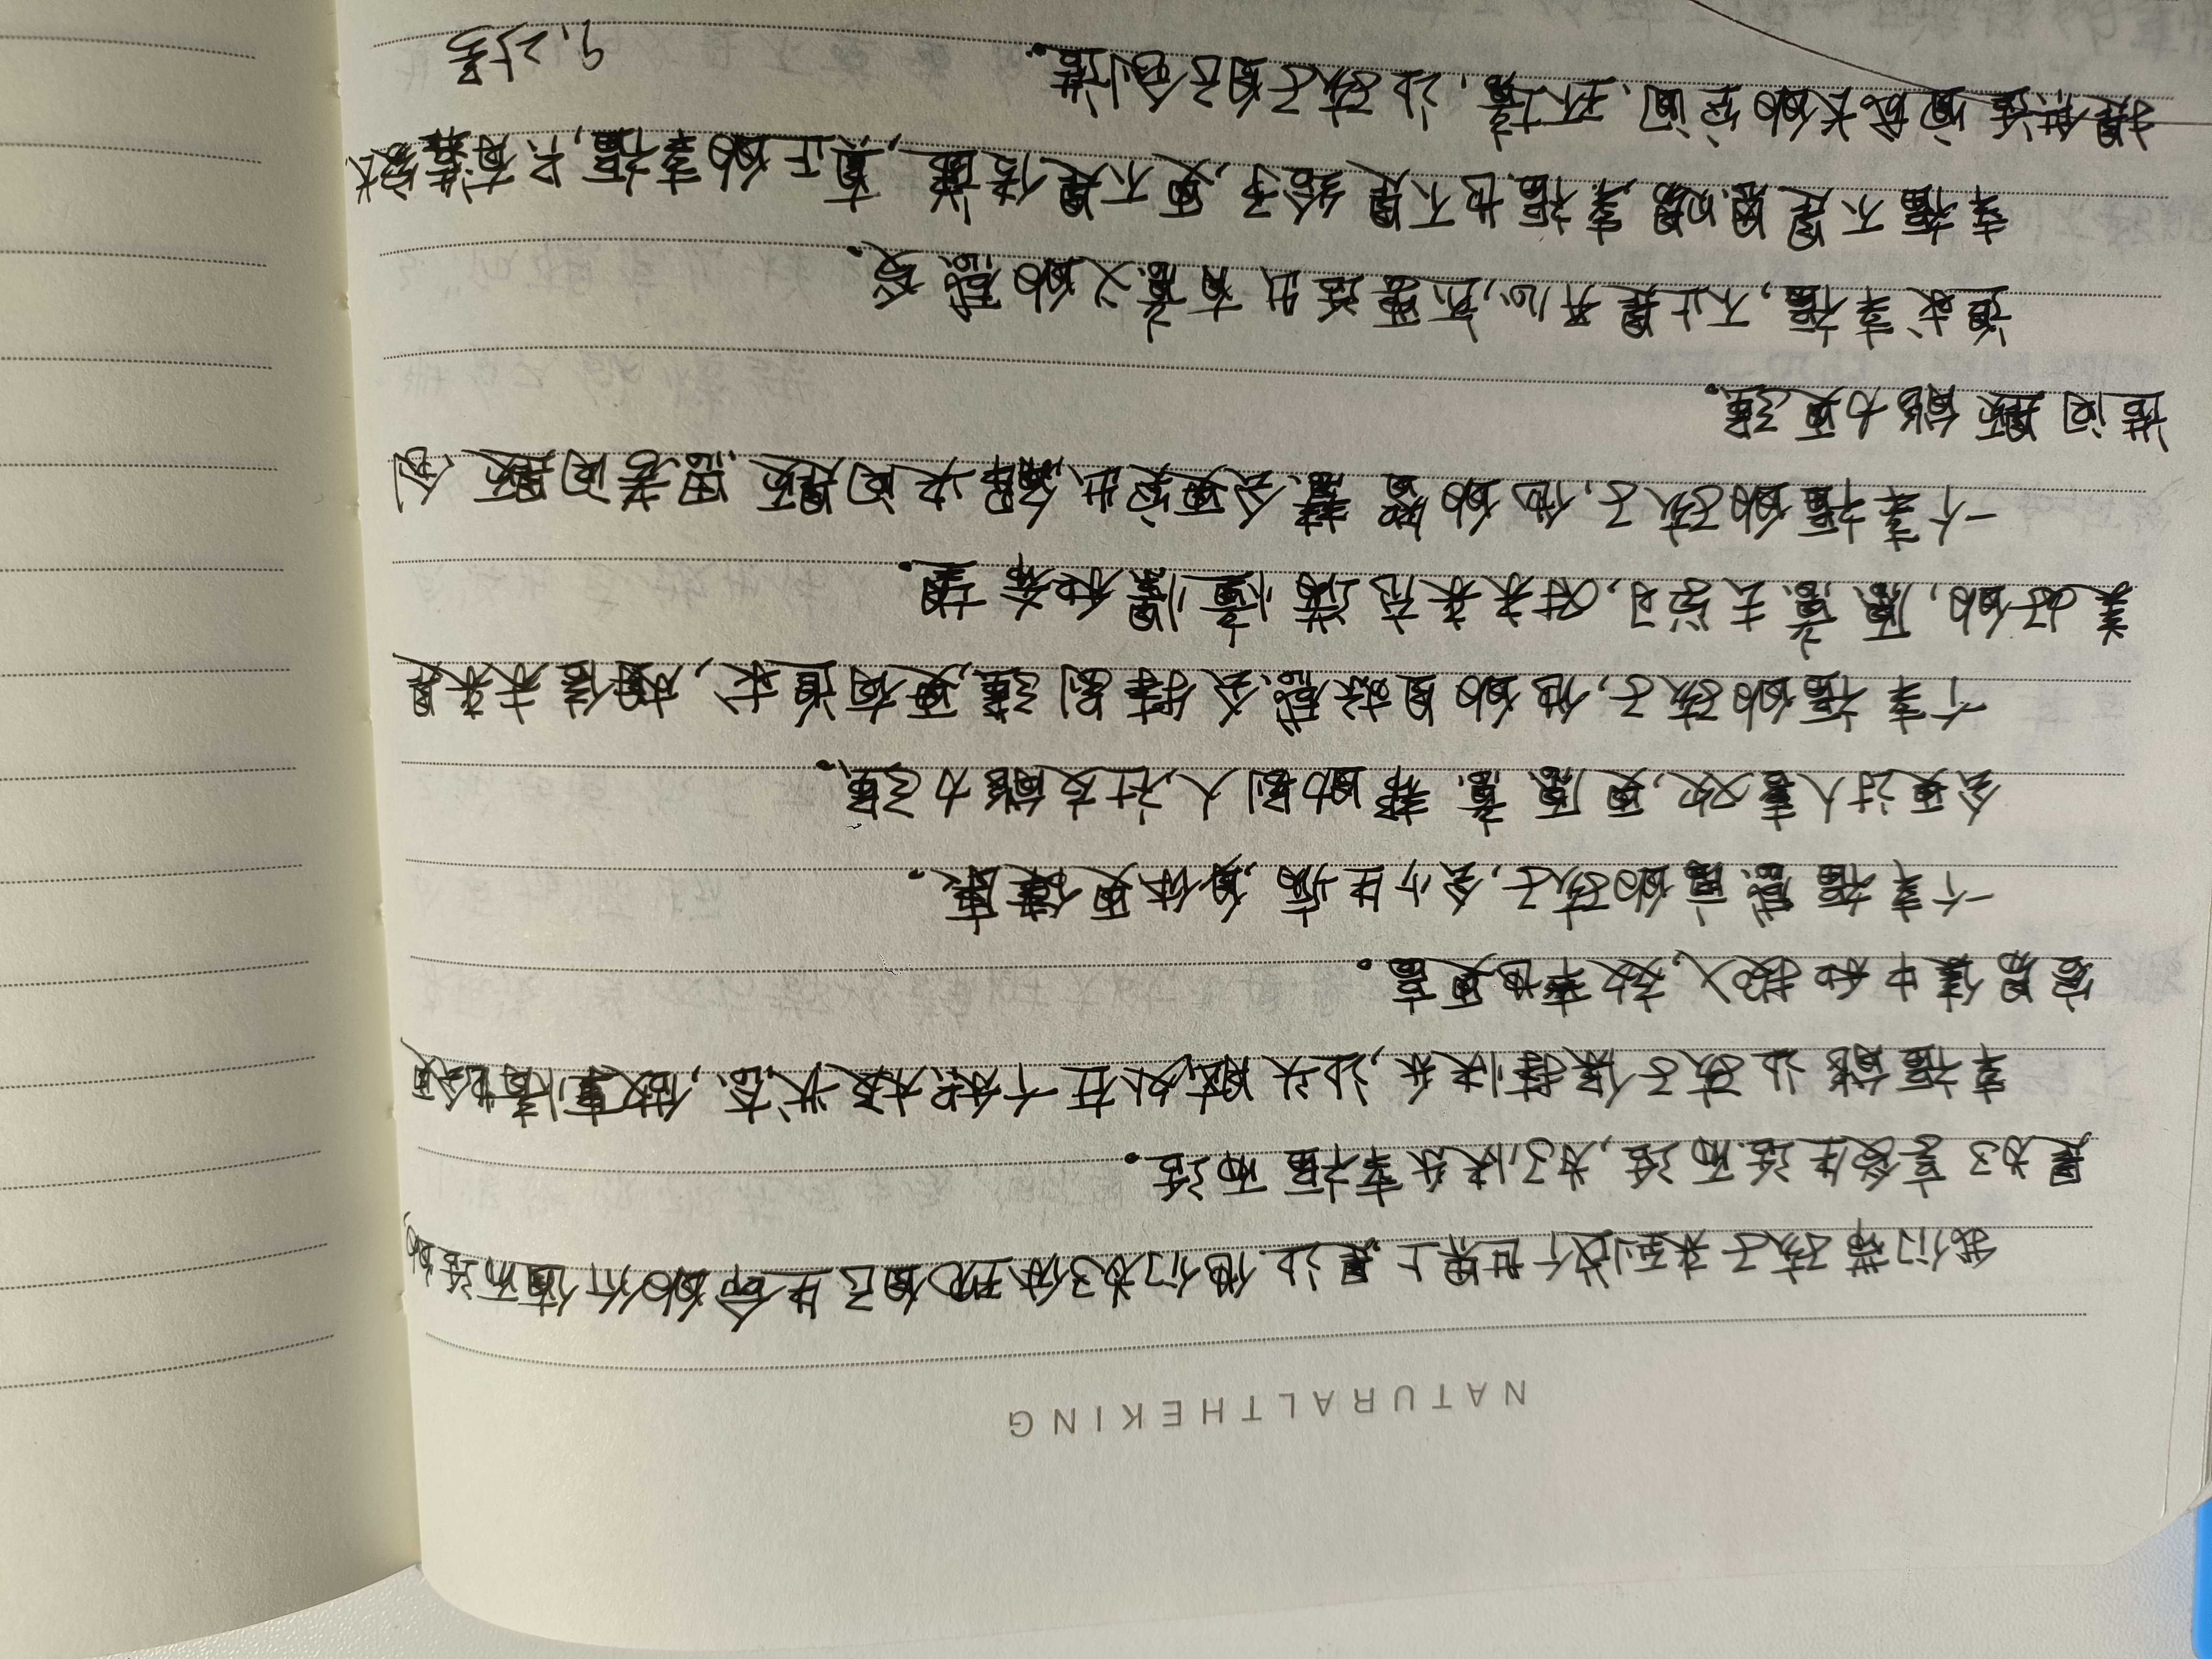 NATURALTHEKING
我们带孩子来到这个世界上,是让他们为了体现自己生命的价值而活的
是为了享受生活而活,为了快乐幸福而活。
幸福能让孩子保持快乐,让头脑处在一个积极状态,做事情也会更
容易集中和投入,效率也更高。
一个幸福感高的孩子,会少生病,身体更健康。
会更讨人喜欢,更愿意帮助别人,社交能力强。
个幸福的孩子,他的自我感会特别强,更有追求,相信未来是
美好的,愿意去学习,对未来充满憧憬和希望。
一个幸福的孩子,他的会更突出,解决问题、思考问题、创
造问题能力更强。
追求幸福,不止是开心,还要活出有意义的感受。
幸福不是的,幸福也不是给予,更不是传递,真正的幸福,只有等家长
提供适宜成长的空间、环境,让孩子自己创造。